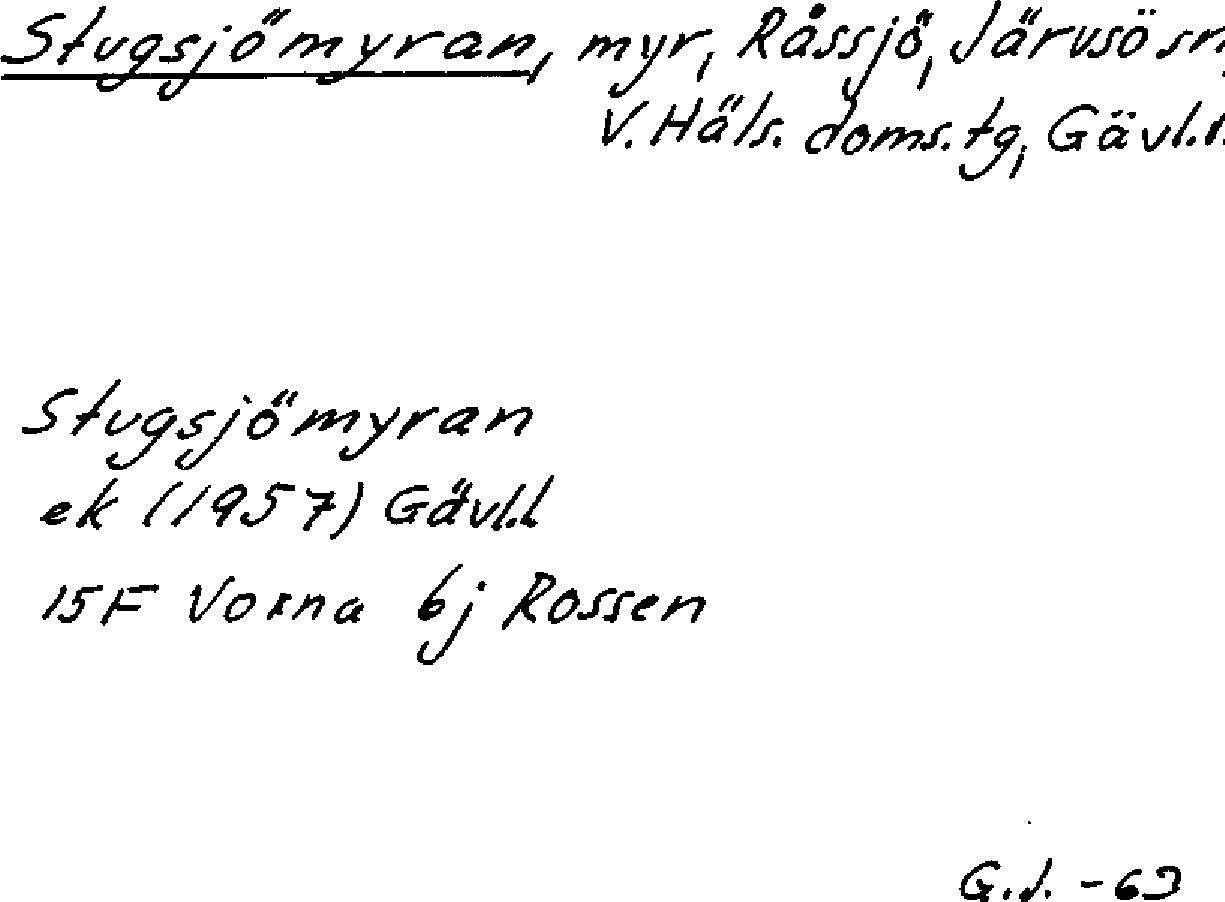 Stugsjömyran, myr, Råssjö, Järvsö sn,
V. Häls. doms. tg, Gävl. l.
Stugsjömyran
ek (1957) Gävl. l.
15F Voxna 6j Rossen
G.J. -63